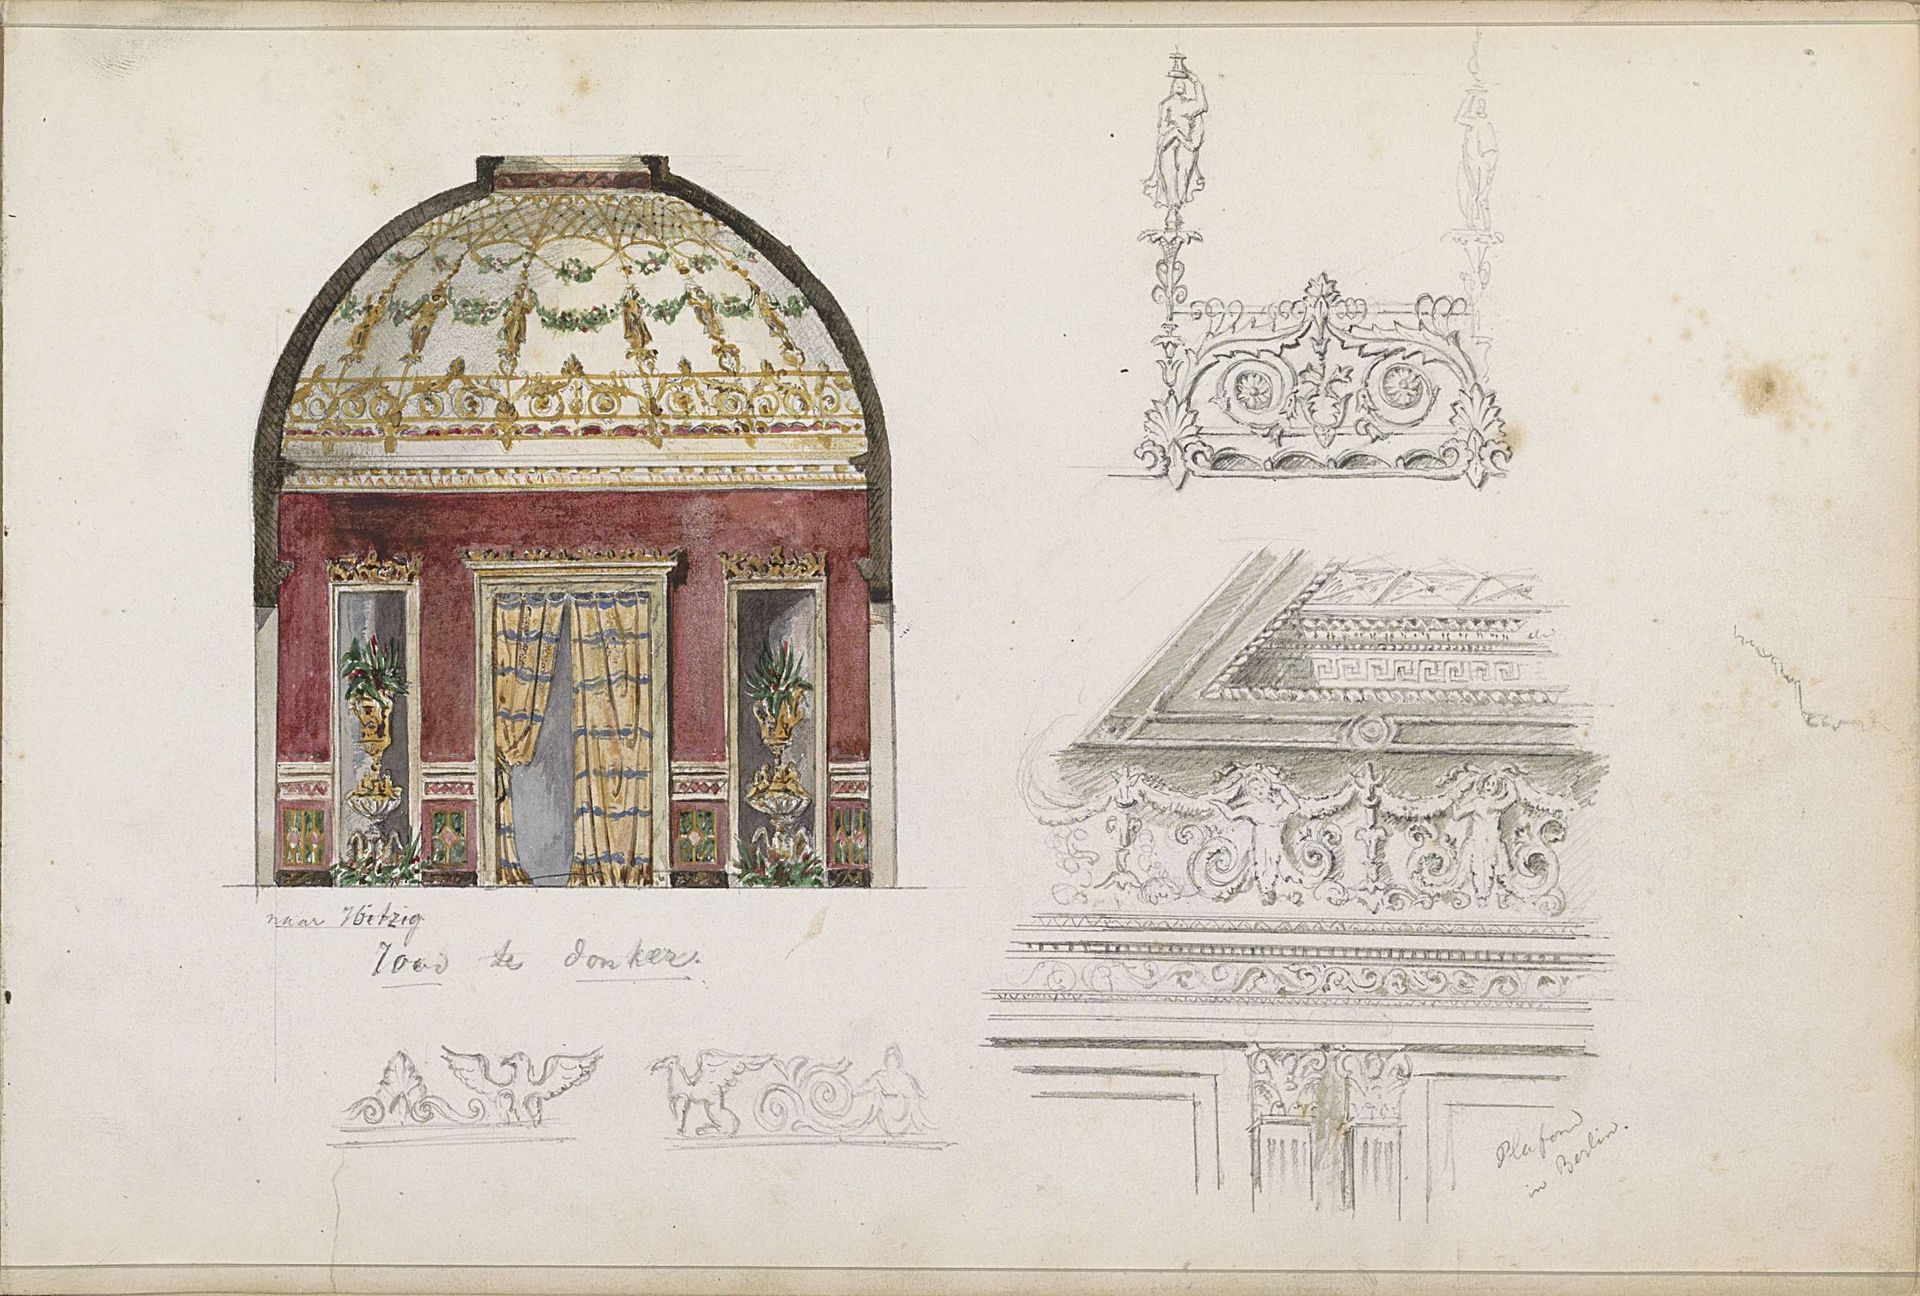 naar Hitzig
rood te donker.
Plafond
in Berlin.